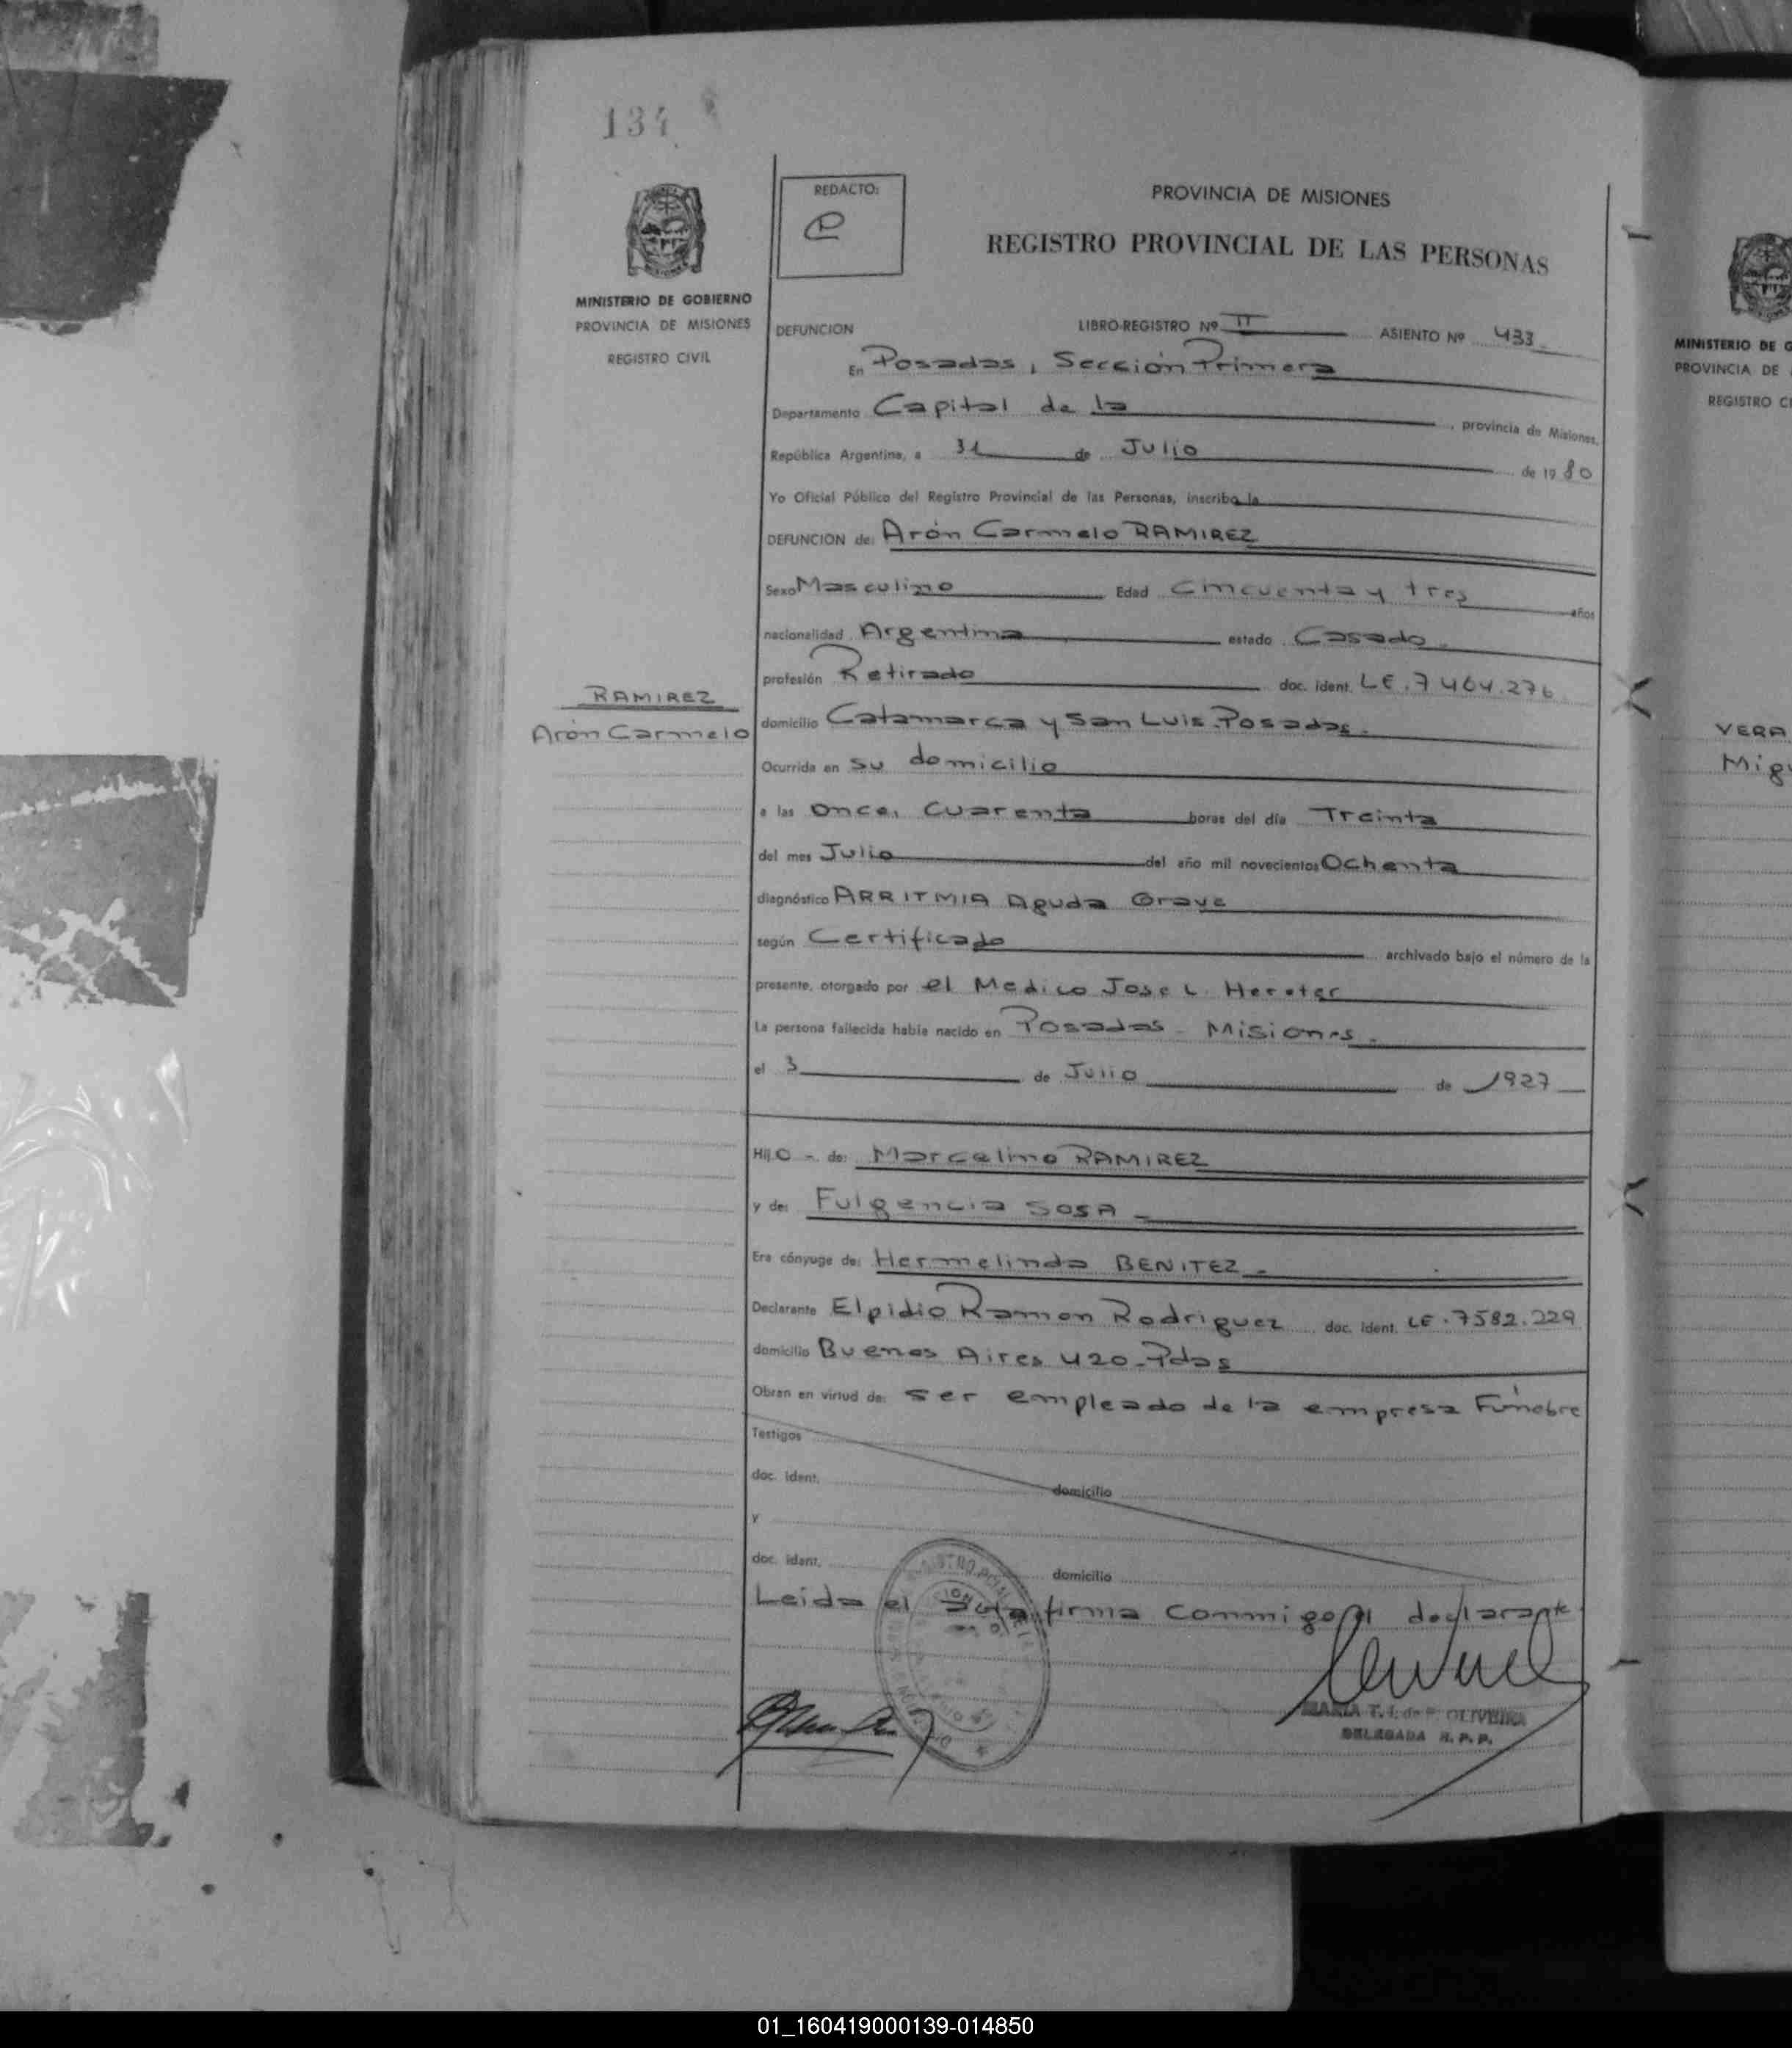 134
REDACTO:
PROVINCIA DE MISIONES
REGISTRO PROVINCIAL DE LAS PERSONAS
MINISTERIO DE GOBIERNO
PROVINCIA DE MISIONES
REGISTRO CIVIL
DEFUNCION LIBRO-REGISTRO Nº II ASIENTO Nº 433
En Posadas, Sección Primera
Departamento Capital de la, provincia de Misiones,
República Argentina, a 31 de Julio de 1980
Yo Oficial Público del Registro Provincial de las Personas, inscribo la
DEFUNCION de: Arón Carmelo RAMIREZ
Sexo Masculino Edad Cincuenta y tres años
nacionalidad Argentina estado Casado.
profesión Retirado doc. ident. LE.7464.276
RAMIREZ
Arón Carmelo
domicilio Catamarca y San Luis-Posadas.
Ocurrida en su domicilio
a las once, cuarenta horas del día Treinta
del mes Julio del año mil novecientos Ochenta
diagnóstico ARRITMIA Aguda Grave
según Certificado archivado bajo el número de la
presente, otorgado por el Medico Jose L.
La persona fallecida había nacido en Posadas - Misiones.
el 3 de Julio de 1927
Hijo - de: Marcelino RAMIREZ
y de: Fulgencia SOSA -
Era cónyuge de: Hermelinda BENITEZ -
Declarante Elpidio Ramon Rodriguez doc. ident. LE.7582.229
domicilio Buenos Aires 420-Pdas
Obran en virtud de: ser empleado de la empresa Fúnebre
Testigos
doc. ident. domicilio
y
doc. ident. domicilio
Leida el acta, firma conmigo el declarante
MARIA T. I. de F. OLIVEIRA
DELEGADA R. P. P.
MINISTERIO DE G
PROVINCIA DE
REGISTRO CI
VERA
Mig
01_160419000139-014850